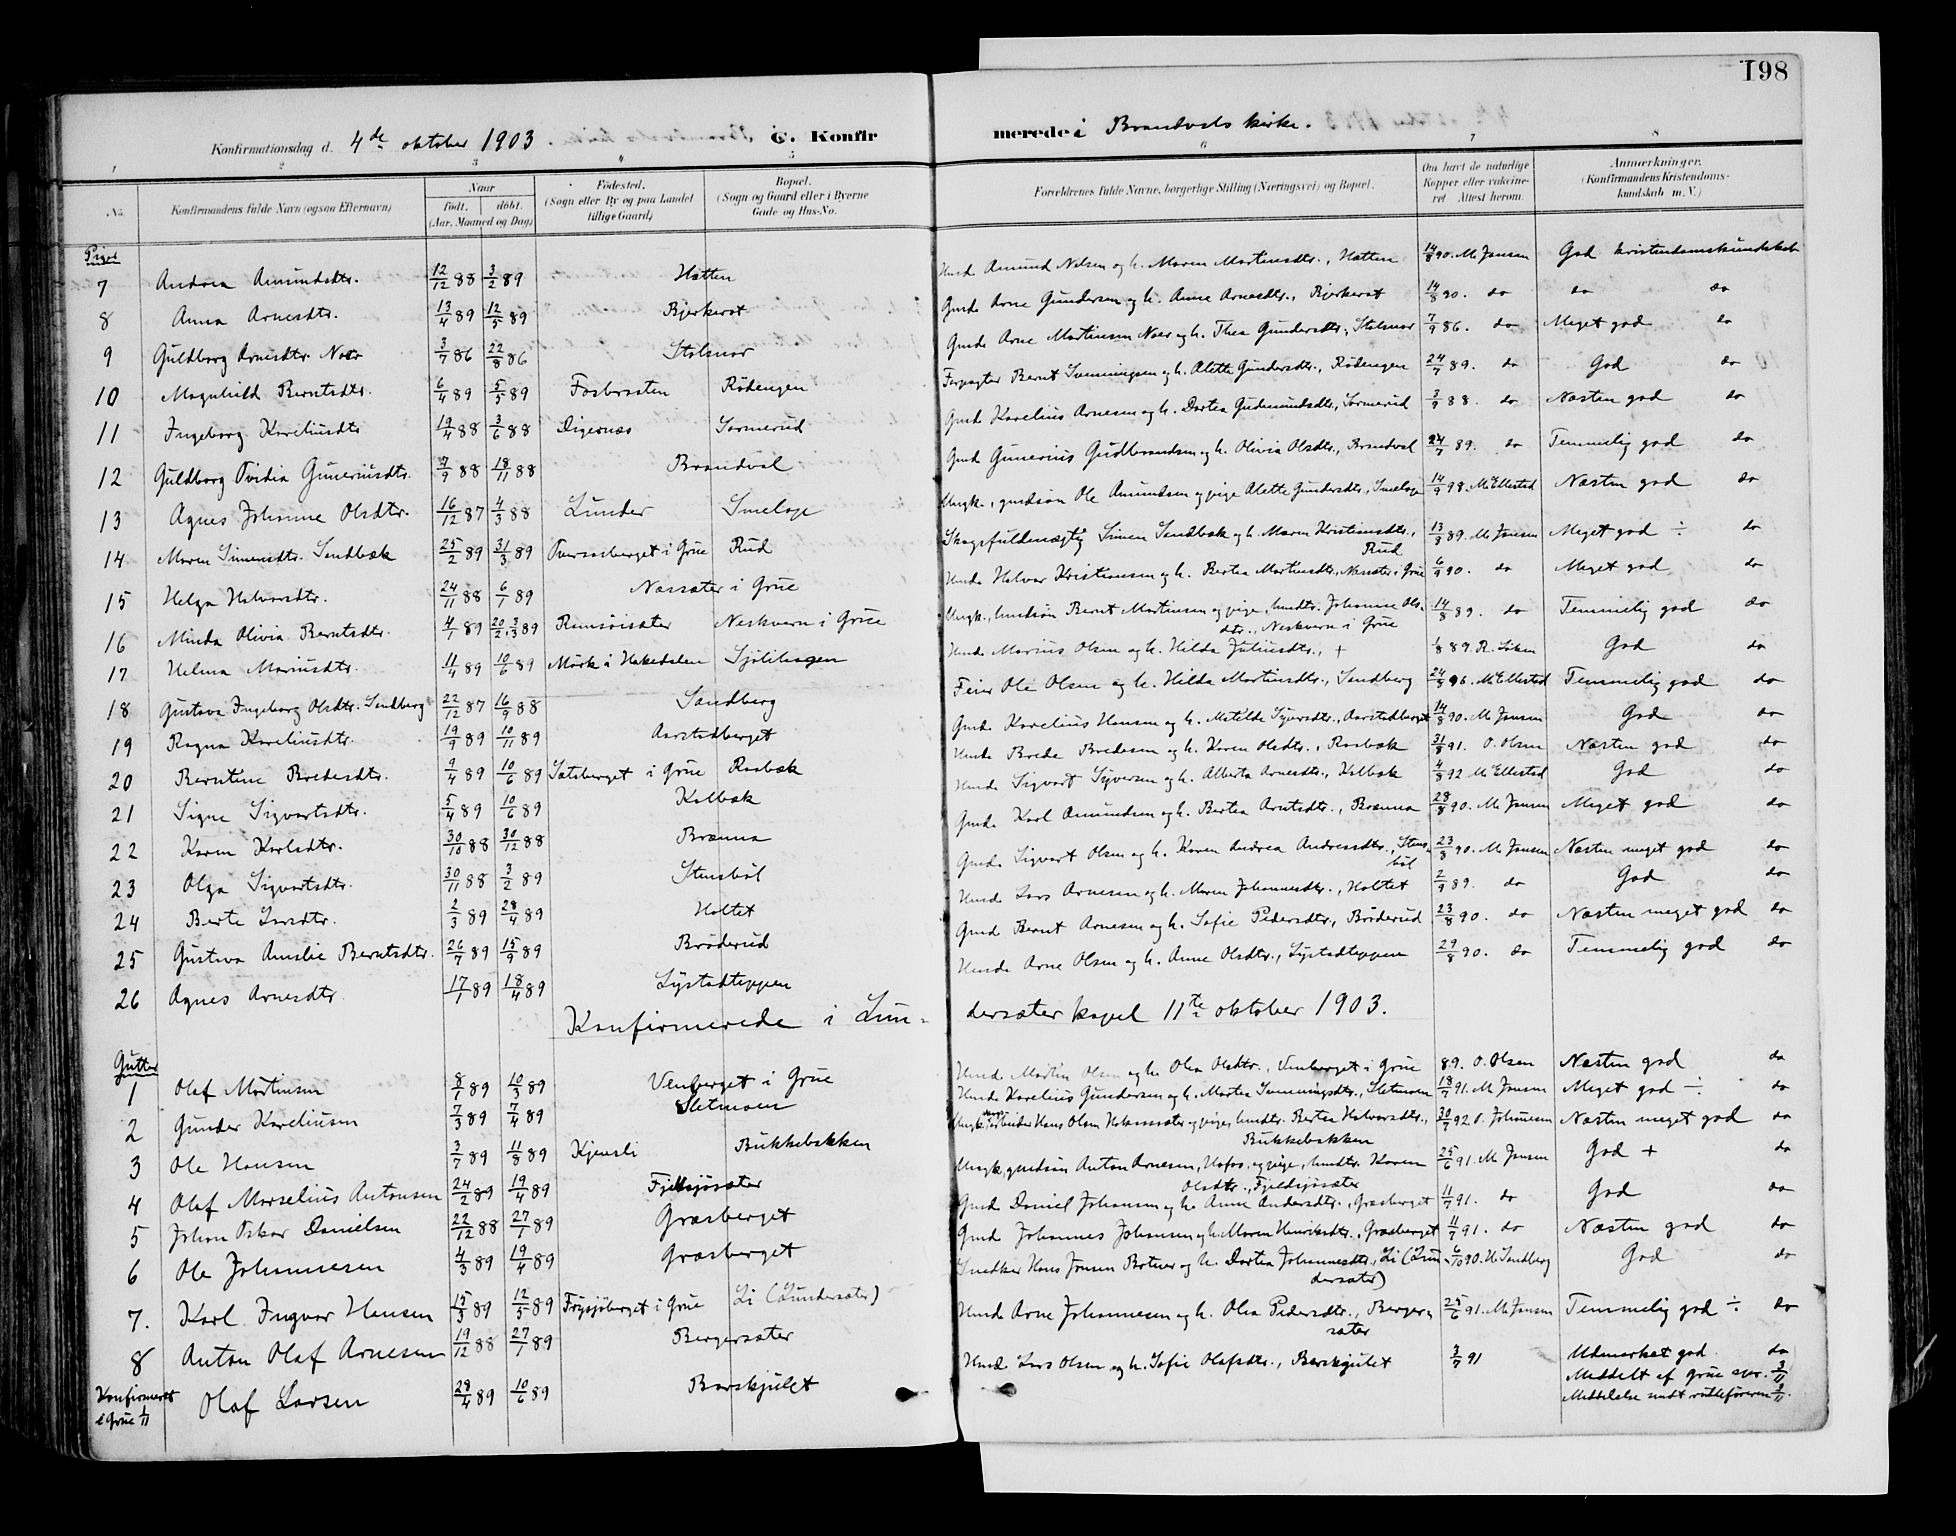 198
Konfirmationsdag d. 4de oktober 1903. C. Konfirmerede i Brandvols kirke.
1 2 3 4 5 6 7 8
No. Konfirmandens fulde Navn (ogsaa Efternavn) Naar født. døbt. (Aar, Maaned og Dag) Fødested. (Sogn eller By og paa Landet tillige Gaard) Bopæl. (Sogn og Gaard eller i Byerne Gade og Hus-No. Forældrenes fulde Navne, borgerlige Stilling (Næringsvei) og Bopæl. Om havt de naturlige Kopper eller vakcineret Attest herom. Anmærkninger. (Konfirmandens Kristendomskundskab m. V.)
Piger
7 Andrea Amundsdtr. 12/12 88 3/2 89 Hatten Husm. Amund Nilsen og h. Maren Martinsdtr., Hatten 14/8 90. M. Jansen God kristendomskundskab
8 Anna Arnesdtr. 13/4 89 12/5 89 Bjerkerot Gmd. Arne Gundersen og h. Anne Arnesdtr., Bjerkerot 14/8 90. do do do
9 Guldborg Arnesdtr. Noer 3/7 86 22/8 86 Stolsnor Gmd. Arne Martinsen Noer og h. Thea Gundersdtr., Stolsnor 7/9 86. do Meget god do
10 Magnhild Berntsdtr. 6/4 89 5/5 89 Fosbraaten Rødengen Forpagter Bernt Svenningsen og h. Alette Gundersdtr., Rødengen 24/7 89. do God do
11 Ingeborg Kareliusdtr 19/4 88 3/6 88 Digernæs Sormerud Gmd. Karelius Arnesen og h. Dortea Gudmundsdtr., Sormerud 3/9 88. do Næsten god do
12 Guldborg Ovidia Guneriusdtr. 7/9 88 18/11 88 Brandvol Gmd. Gunerius Gudbrandsen og h. Olivia Olsdtr., Brandvol 24/7 89. do Temmelig god do
13 Agnes Johanne Olsdtr. 16/12 87 4/3 88 Lunder Smeloge Ungk., gmdsøn Ole Amundsen og pige Alette Gundersdtr., Smeloge 14/9 98. M. Ellestad Næsten god do
14 Maren Simensdtr. Sandbæk 25/2 89 31/3 89 Tversasberget i Grue Rud Skogsfuldmægtig Simen Sandbæk og h. Maren Kristiansdtr., Rud 13/8 89. M. Jansen Meget god ÷ do
15 Helga Halvorsdtr. 24/11 88 6/1 89 Næssæter i Grue Husm. Halvor Kristiansen og h. Bertea Martinsdtr., Næssæter i Grue 6/9 90. do Meget god do
16 Minda Olivia Berntsdtr. 4/1 89 20/2, 3/3 89 Rensøisæter Neskvern i Grue Ungk., husmdsøn Bernt Martinsen og pige, husmdtr. Johanne Olsdtr., Neskvern i Grue 14/8 89. do Temmelig god do
17 Helma Mariusdtr. 11/4 89 10/6 89 Mørk i Hakedalen Sjølihagen Husm. Marius Olsen og h. Hilda Juliusdtr., + 1/8 89. R. Løken God do
18 Gustava Ingeborg Olsdtr. Sandberg 22/12 87 16/9 88 Sandberg Feier Ole Olsen og h. Hilda Martinsdtr., Sandberg 24/9 96. M. Ellestad Temmelig god do
19 Ragna Kareliusdtr. 19/9 89 10/11 89 Aarstadberget Gmd. Karelius Hansen og h. Matilde Syversdtr., Aarstadberget 14/8 90. M. Jansen God do
20 Berntine Bredesdtr. 9/4 89 10/6 89 Satsberget i Grue Rasbæk Husm. Brede Bredesen og h. Karen Olsdtr., Rasbæk 31/8 91. O. Olsen Næsten god do
21 Signe Sigvartsdtr. 5/4 89 10/6 89 Kolbæk Husm. Sigvart Syversen og h. Alberta Arnesdtr., Kolbæk 4/8 92 M. Ellestad God do
22 Karen Karlsdtr. 30/10 88 30/12 88 Brænna Gmd. Karl Amundsen og h. Bertea Arntsdtr., Brænna 28/8 90. M. Jansen Meget god do
23 Olga Sigvartsdtr. 30/11 88 3/2 89 Stensbøl Gmd. Sigvart Olsen og h. Karen Andrea Andreasdtr., Stensbøl 23/8 90. M. Jansen Næsten meget god do
24 Berte Larsdtr. 2/3 89 28/4 89 Holtet Husm. Lars Arnesen og h. Maren Johannesdtr., Holtet 2/9 89. do God do
25 Gustava Amalie Berntsdtr. 26/7 89 15/9 89 Brøderud Gmd. Bernt Arnesen og h. Sofie Pedersdtr., Brøderud 23/8 90. do Næsten meget god do
26 Agnes Arnesdtr. 17/1 89 18/4 89 Lystadteppen Husm. Arne Olsen og h. Anne Olsdtr., Lystadteppen 29/8 90. do Temmelig god do
Konfirmerede i Lundersæter kapel 11te oktober 1903.
Gutter
1 Olaf Martinsen 8/1 89 10/3 89 Venberget i Grue Husm. Martin Olsen og h. Olea Olsdtr., Venberget i Grue 89. O. Olsen Næsten god do
2 Gunder Kareliusen 7/3 89 7/4 89 Sletmoen Husm. Karelius Gundersen og h. Martea Svenningsdtr., Sletmoen 18/7 91. M. Jansen Meget god ÷ do
3 Ole Hansen 3/7 89 11/8 89 Kjensli Bukkebakken Ungk. arbeider Hans Olsen og pige, husmdtr. Bertea Halvorsdtr., Bukkebakken 30/7 92 O. Johansen Næsten meget god do
4 Olaf Marselius Antonsen 24/2 89 19/4 89 Fjeldsjøsæter Ungk., gmdsøn Anton Arnesen, Hofos, og pige, husmdtr. Karen Olsdtr., Fjeldsjøsæter 25/6 91. M. Jansen God + do
5 Johan Oskar Danielsen 22/12 88 27/1 89 Græsberget Gmd. Daniel Johansen og h. Anne Andersdtr., Græsberget 11/7 91. do God do
6 Ole Johannesen 4/3 89 19/4 89 Græsberget Gmd. Johannes Johansen og h. Maren Henriksdtr., Græsberget 11/7 91. do Næsten god do
7. Karl Ingvar Hansen 15/3 89 12/5 89 Frysjøberget i Grue Li (Lundersæter) Snedker Hans Jonsen Botner og h. Dortea Johannesdtr., Li (Lundersæter) 6/10 90. H. Sandberg God do
8 Anton Olaf Arnesen 19/12 88 27/1 89 Bergersæter Husm. Arne Johannesen og h. Olea Pedersdtr., Bergersæter 25/6 91. M. Jansen Temmelig god ÷ do
Konfirmeret i Grue 1/11 Olaf Larsen 28/4 89 10/6 89 Barskjulet Husm. Lars Olsen og h. Sofie Olafsdtr., Barskjulet 3/7 91 Udmærket god do
Meddelt af Grue spr. 3/11
Meddelelse sendt rulleføreren 3/11.